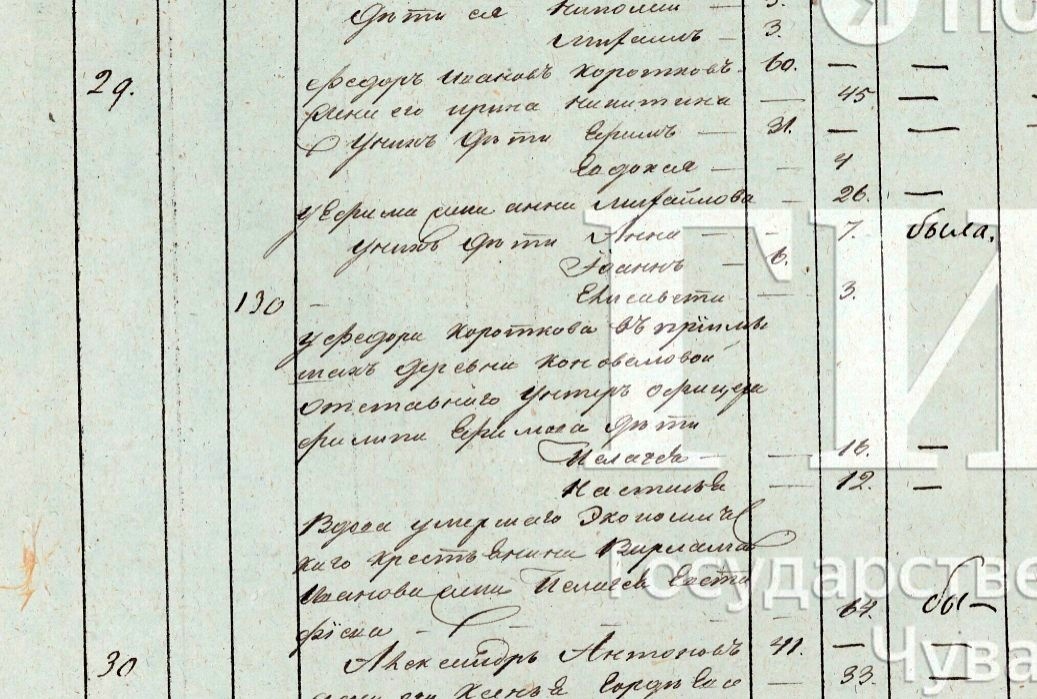 дѣти ея Николай — 3.
Михаилъ — 3.
29. Ѳедоръ Ивановъ Коротковъ 60. — —
жена его Ирина Никитина — 45 —
У нихъ дѣти Ефимъ — 31. — —
Евдокея — — 4
у Ефима жена Анна Михайлова — 26. —
У нихъ дѣти Анна — — 7. была.
Іоаннъ — 6.
130 — Елисавета — 3.
у Ѳедора Короткова въ пріимы
шахъ деревни Коноваловой
отставнаго Унтеръ офицера
Филипа Ефимова дѣти
Пелагея — — 16. —
Настасья — 12. —
Вдова умершаго Экономичес
каго крестьянина Варлама
Иванова жена Пелагея Евста
фіева — — — 64. бы—
30 Александръ Антоновъ 41. — —
жена его Ксенья 33. —
Государстве
Чува